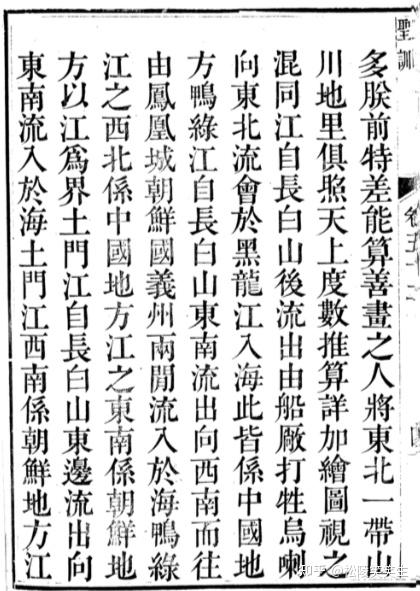 聖訓
多朕前特差能算善畫之人將東北一帶山
川地里俱照天上度數推算詳加繪圖視之
混同江自長白山後流出由船厰打牲烏喇
向東北流會於黑龍江入海此皆係中國地
方鴨綠江自長白山東南流出向西南而往
由鳳凰城朝鮮國義州兩間流入於海鴨綠
江之西北係中國地方江之東南係朝鮮地
方以江爲界土門江自長白山東邊流出向
東南流入於海土門江西南係朝鮮地方江
知乎